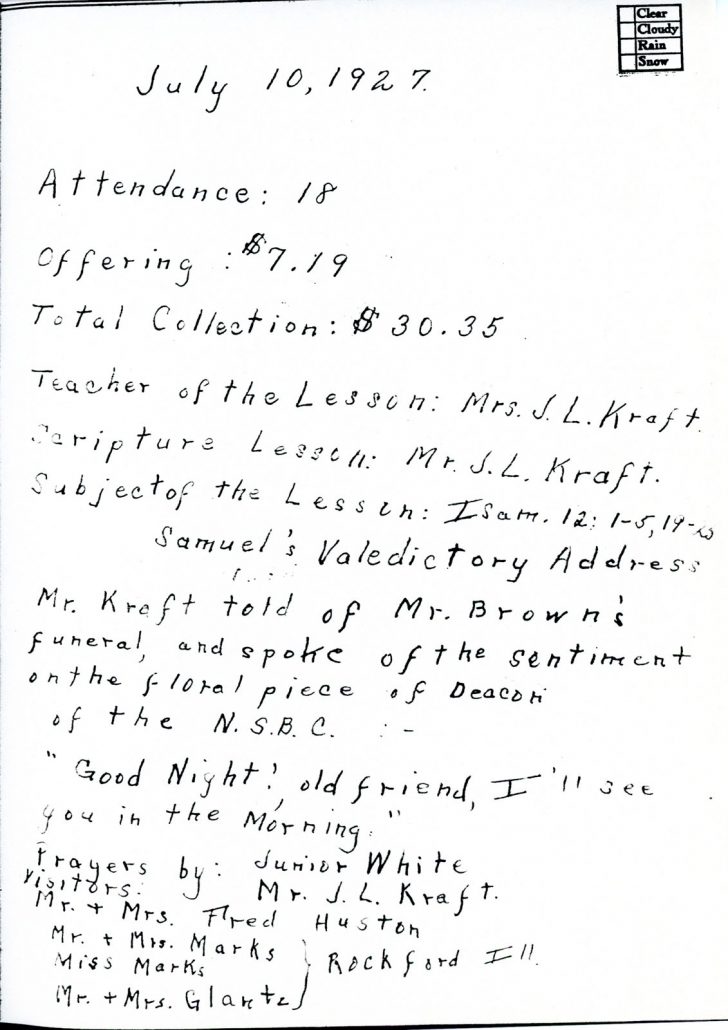 Clear
Cloudy
Rain
Snow
July 10, 1927.
Attendance: 18
Offering : $7.19
Total Collection: $30.35
Teacher of the Lesson: Mrs. J. L. Kraft.
Scripture Lesson: Mr. J. L. Kraft.
Subject of the Lesson: I Sam. 12: 1-5, 19-25
Samuel's Valedictory Address
Mr. Kraft told of Mr. Brown's
funeral, and spoke of the sentiment
on the floral piece of Deacon
of the N.S.B.C. :-
"Good Night! old friend, I'll see
you in the Morning."
Prayers by: Junior White
Mr. J. L. Kraft.
Visitors:
Mr. + Mrs. Fred Huston
Mr. + Mrs. Marks
Miss Marks
Rockford Ill.
Mr. + Mrs. Glantz